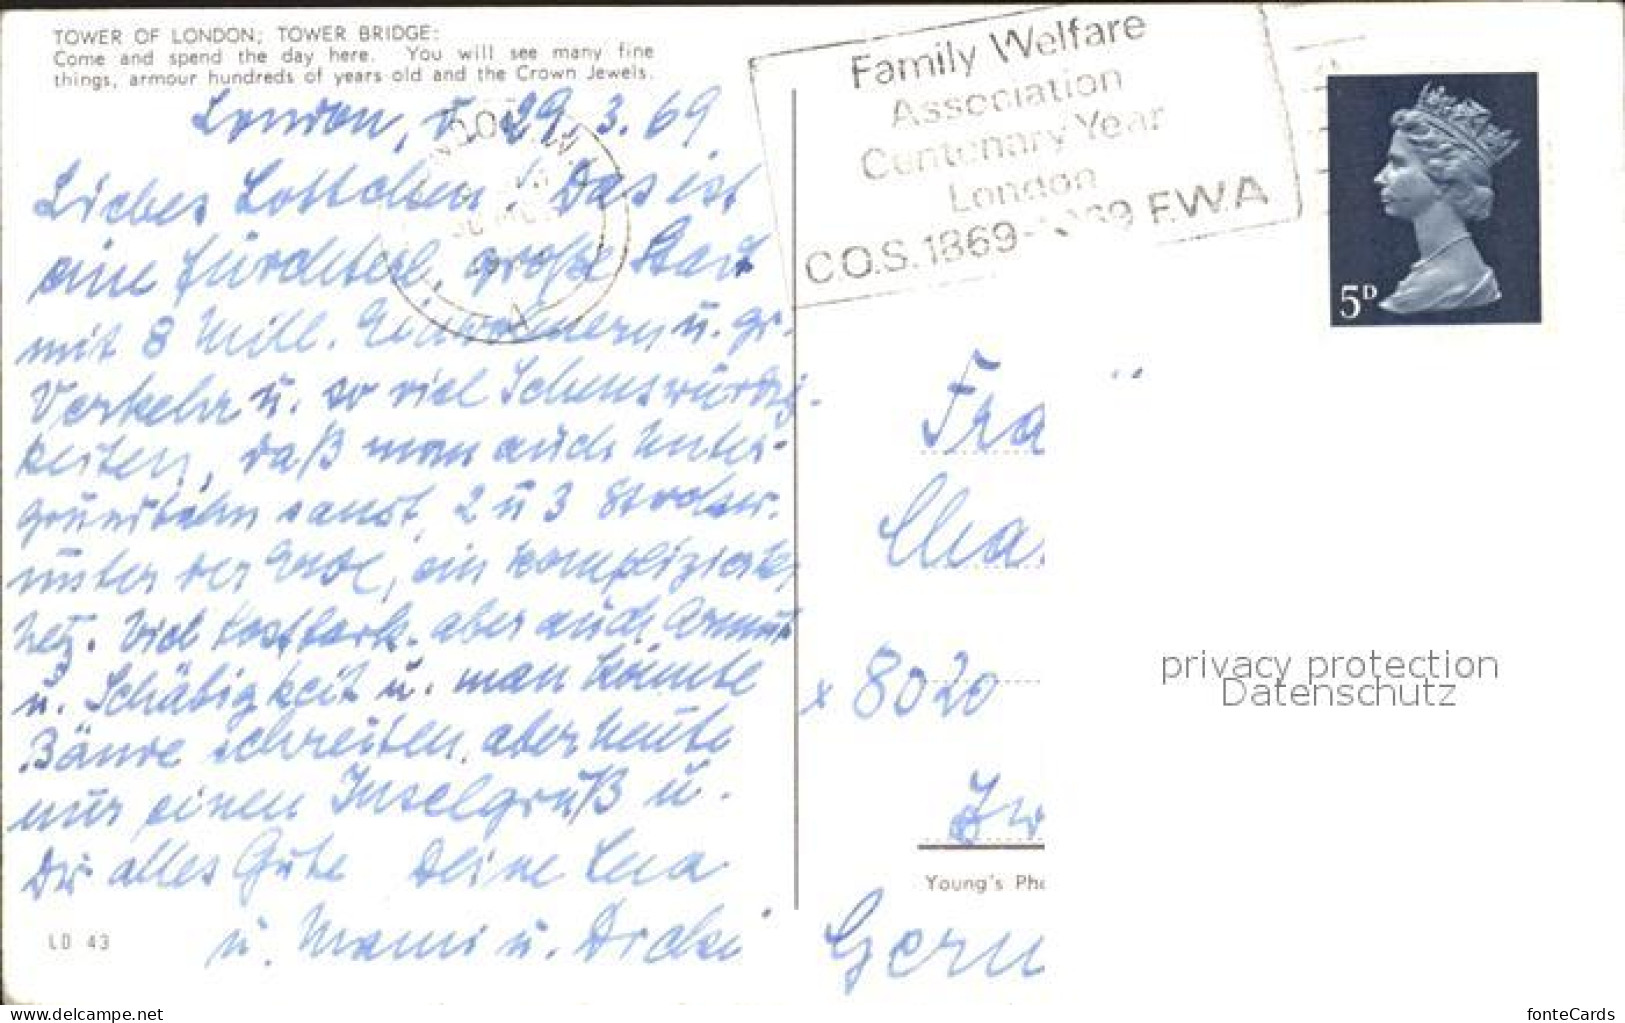 TOWER OF LONDON; TOWER BRIDGE:
Come and spend the day here. You will see many fine
things, armour hundreds of years old and the Crown Jewels.
London, d. 29. 3. 69.
Liebes Lottchen! Das ist
eine fürchterl. große Stadt
mit 8 Mill. Einwohnern u. gr.
Verkehr u. so viel Sehenswürdig-
keiten, daß man auch Unter-
grundbahn saust, 2 u 3 Stockw.
unter der Erde, ein kompliziertes
Netz. Viel Kostbark. aber auch Armut
u. Schäbigkeit u. man könnte
Bände schreiben, aber heute
nur einen Inselgruß u.
Dir alles Gute Deine
u. Mami u.
LD 43
Family Welfare
Association
Centenary Year
London
C.O.S. 1869-1969 F.W.A
5D
Fra
x 8020
Zw
Young's Pho
Germ
privacy protection
Datenschutz
www.delcampe.net
fonteCards